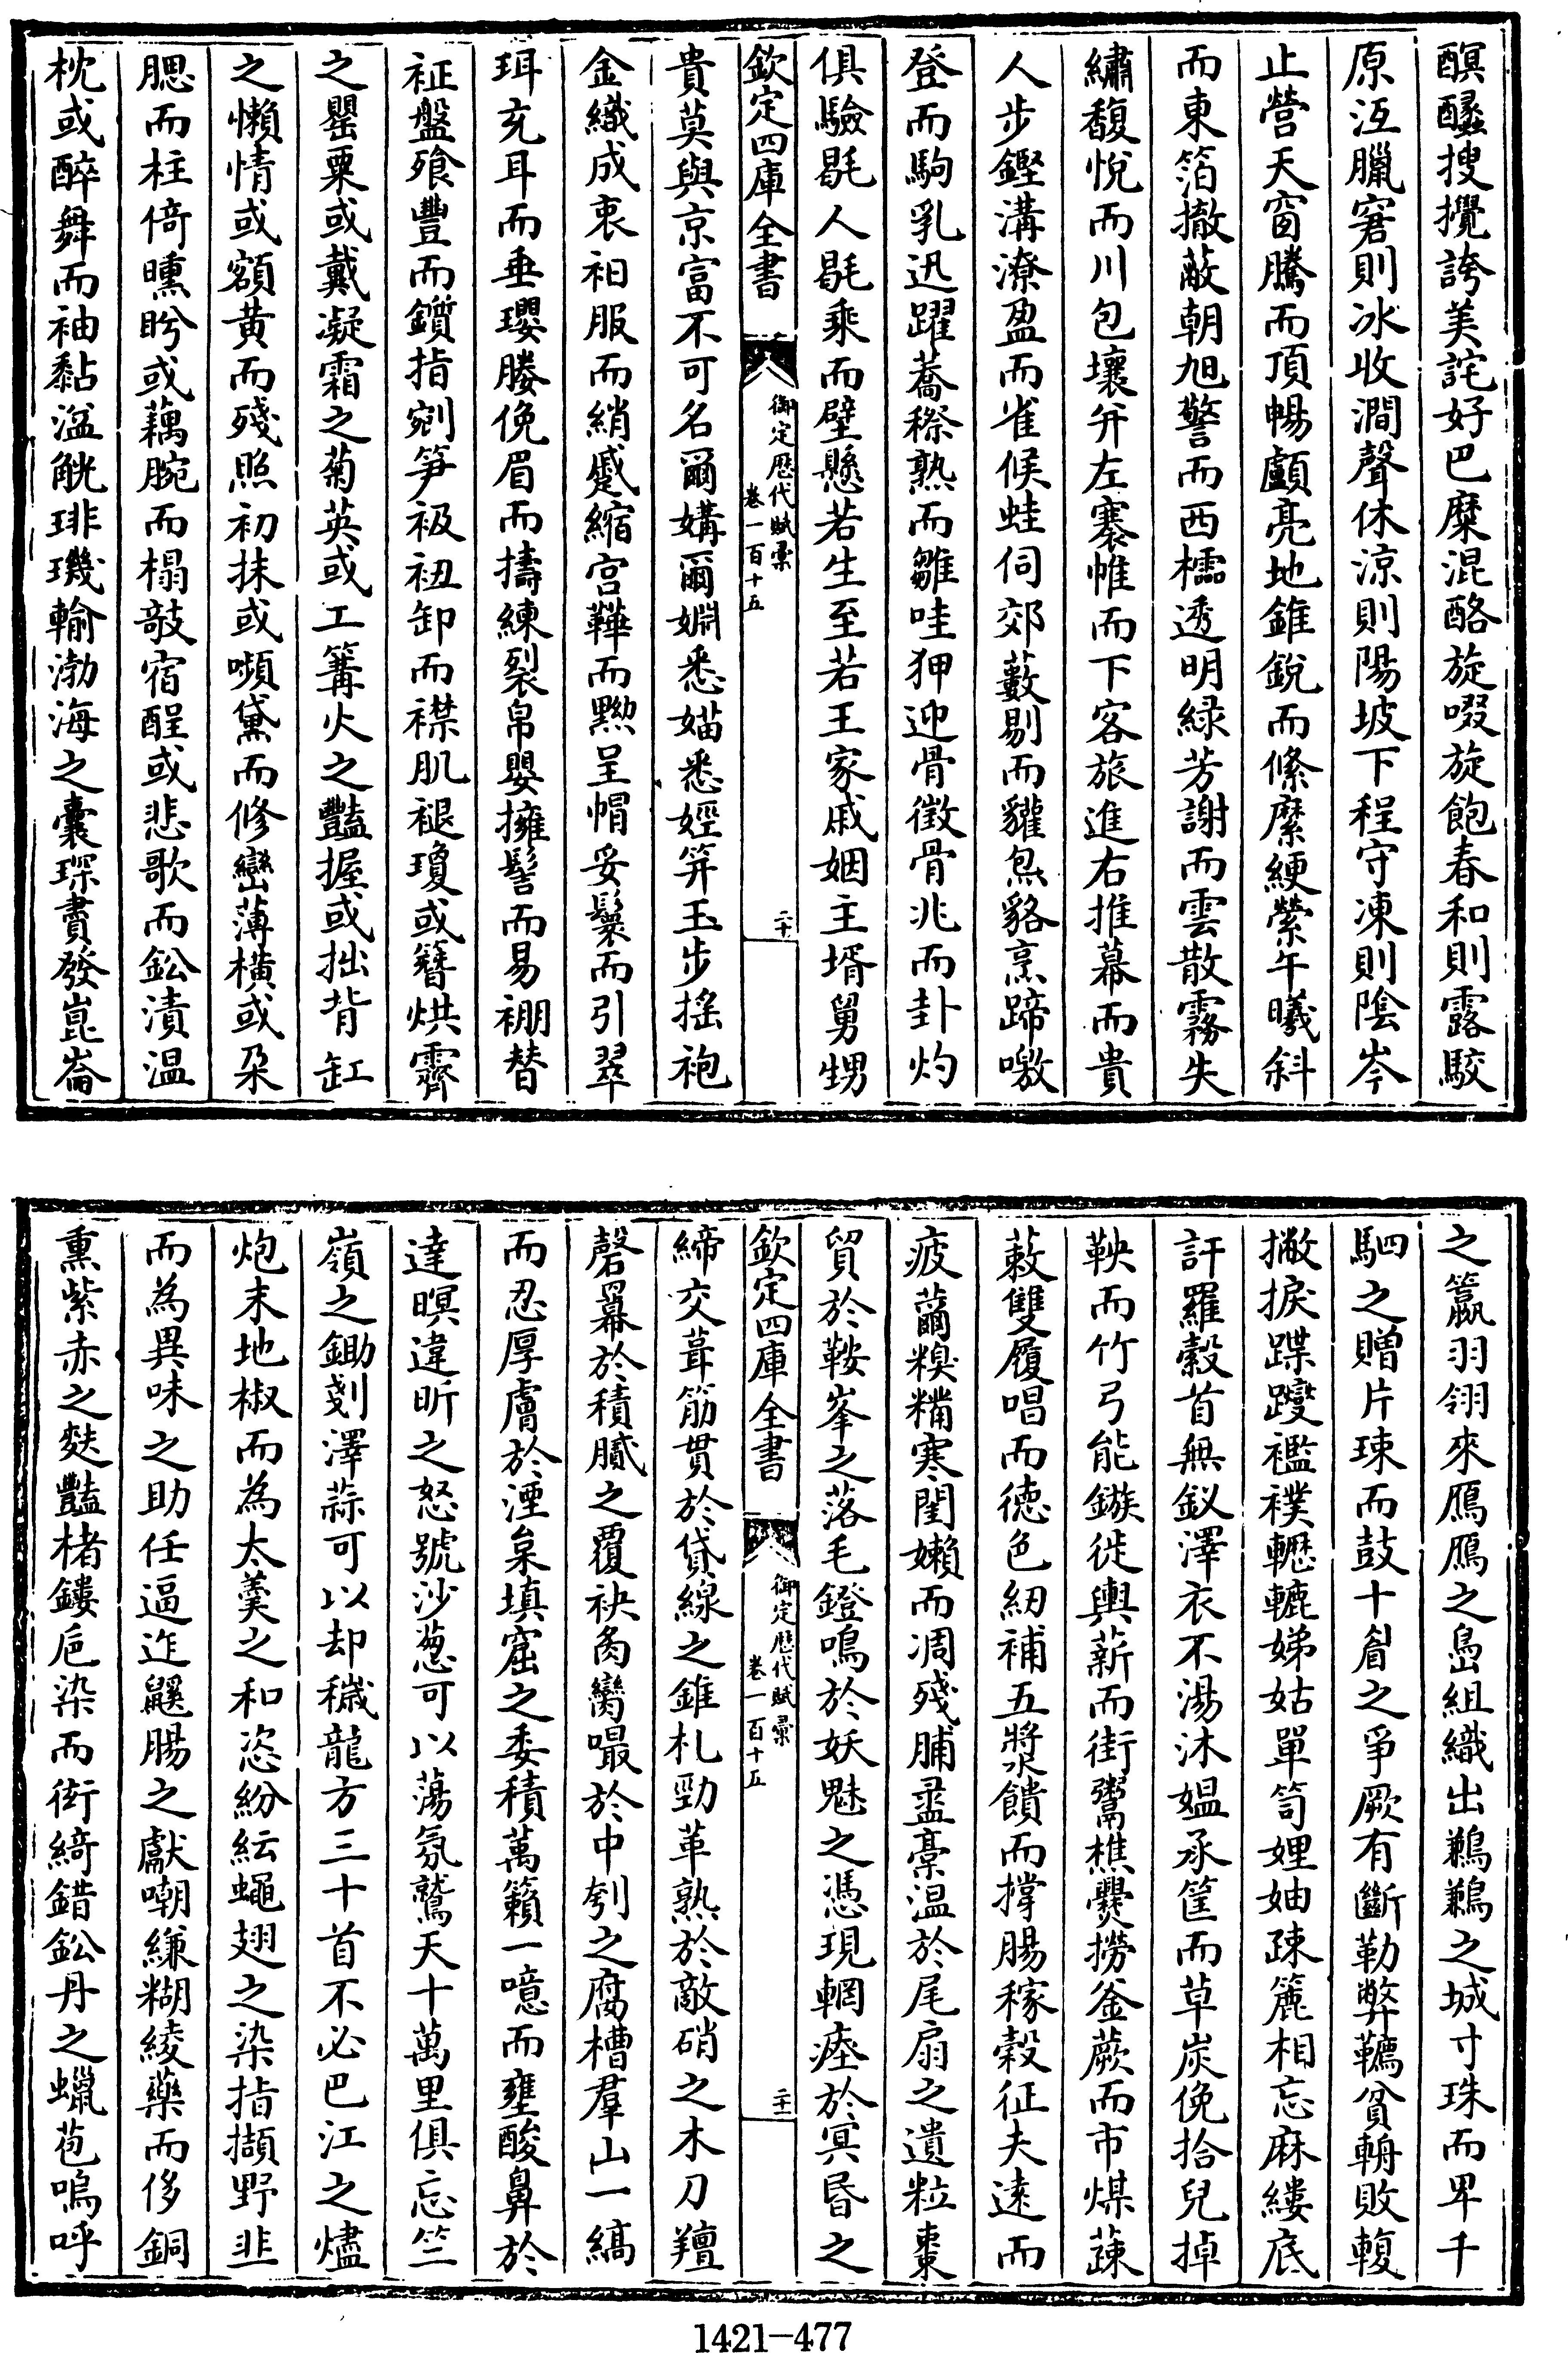 醭醱搜攪誇美詫好巴糜混酪旋啜旋飽春和則露駮
原沍臘窘則冰收澗聲休涼則陽坡下程守凍則陰岑
止營天窗騰而頂暢顱亮地錐銳而絛縻綆縈午曦斜
而東箔撤蔽朝旭警而西櫺透明緑芳謝而雲散霧失
繡馥悅而川包壤弁左褰帷而下客旅進右推幕而貴
人步鏗溝潦盈而雀候蛙伺郊藪剔而貛炰貉烹蹄噭
登而駒乳迅躍蕎穄熟而雛哇狎迎骨徵骨兆而卦灼
俱驗毼人毼乘而壁懸若生至若王家戚姻主壻舅甥
欽定四庫全書
御定歴代賦彙
卷一百十五
二十
貴莫與京富不可名爾媾爾婣悉媌悉娙笄玉步摇袍
金織成衷衵服而綃蹙縮宫鞾而黝呈帽妥鬟而引翠
珥充耳而垂瓔媵俛眉而擣練裂帛嬰擁髻而易褓替
袵盤飱豐而鑕指剜笋衱衵卸而襟肌褪瓊或簪烘霽
之罌粟或戴凝霜之菊英或工篝火之豔握或拙背缸
之懶情或額黄而殘照初抹或嚬黛而修巒薄横或朶
腮而柱倚曛盻或藕腕而榻敧宿酲或悲歌而鈆漬温
枕或醉舞而袖黏溢觥琲璣輸渤海之囊琛賮發崑崙
之籯羽翎來鴈鴈之嵒組織出鶼鶼之城寸珠而畀千
駟之贈片琜而鼓十㑞之爭厥有斷勒弊韉貧輈敗輹
撇捩蹀躞襤襆轣轆娣姑單笥娌妯疎簏相忘麻縷底
訐羅縠首無釵澤衣不湯沐媪承筐而草炭俛拾兒掉
鞅而竹弓能鏃徙輿薪而街鬻樵爨撈釜蕨而市煤蔬
蔌雙履唱而徳色紉補五漿饋而撐腸稼穀征夫逺而
疲薾糗糒寒閨嬾而凋殘脯盝槖温於尾扇之遺粒棗
貿於鞍峯之落毛鐙鳴於妖魅之憑現輞瘞於冥昏之
欽定四庫全書
御定歴代賦彙
卷一百十五
二十一
締交葺筋貫於貸線之錐札勁革熟於敵硝之木刀羶
磬羃於積膩之覆袂臠嘬於中刳之腐槽羣山一縞
而忍厚膚於湮臬填窟之委積萬籟一噫而壅酸鼻於
達暝違昕之怒號沙葱可以蕩氛鷟天十萬里俱忘竺
嶺之鋤剗澤蒜可以却穢龍方三十首不必巴江之燼
炮末地椒而為太羹之和恣紛紜蠅翅之染指擷野韭
而為異味之助任逼迮鼷腸之獻嘲縑糊綾藥而侈銅
熏紫赤之麩豔楮鏤巵染而衒綺錯鈆丹之蠟苞嗚呼
1421-477